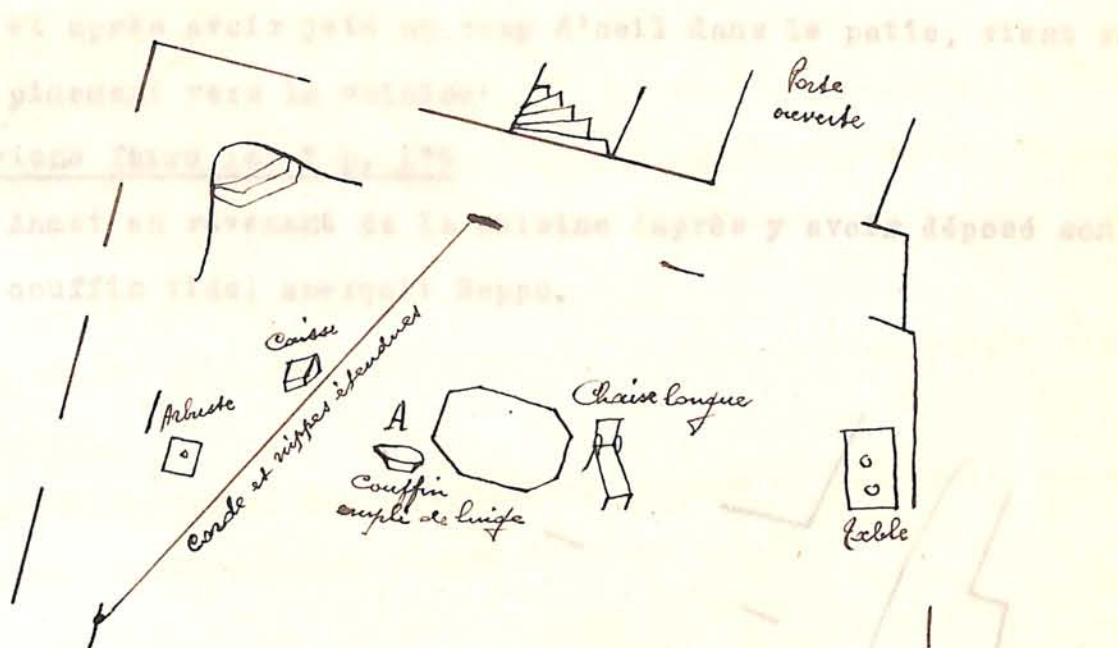 et après avoir jeté un coup d'oeil dans le patio, vient
vers la cuisine
en revenant de la cuisine (après y avoir déposé son
couffin vide) aperçoit Beppo.
Porte
ouverte
Caisse
Arbuste
corde et nippes étendues
A
Couffin
empli de linge
Chaise longue
Table